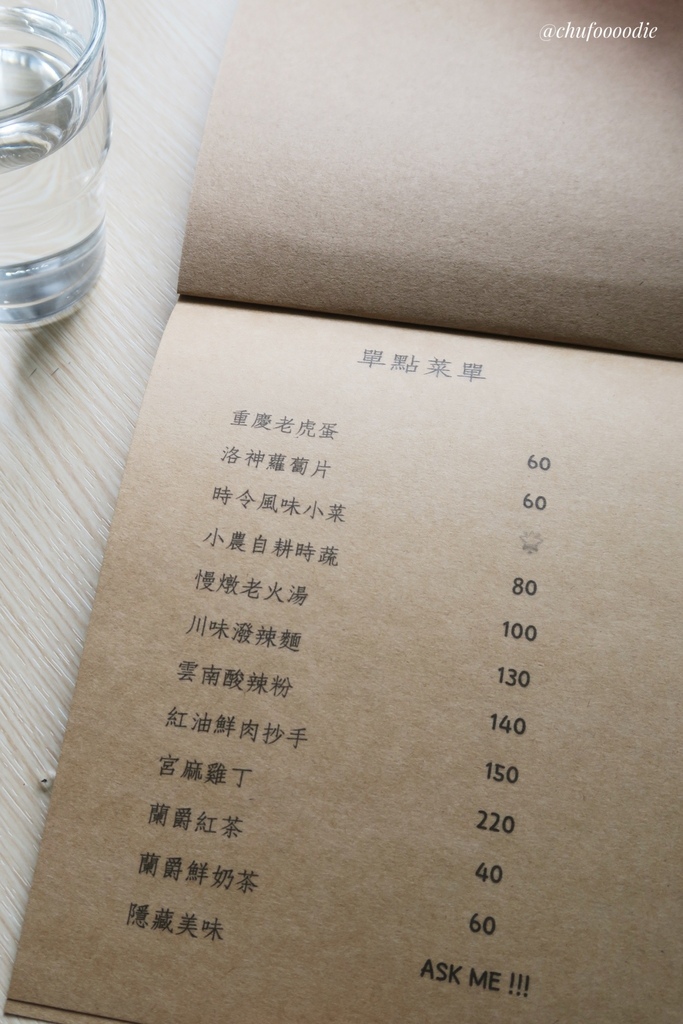 @chufoooodie
單點菜單
重慶老虎蛋 60
洛神蘿蔔片 60
時令風味小菜
小農自耕時蔬 80
慢燉老火湯 100
川味潑辣麵 130
雲南酸辣粉 140
紅油鮮肉抄手 150
宮麻雞丁 220
蘭爵紅茶 40
蘭爵鮮奶茶 60
隱藏美味 ASK ME !!!